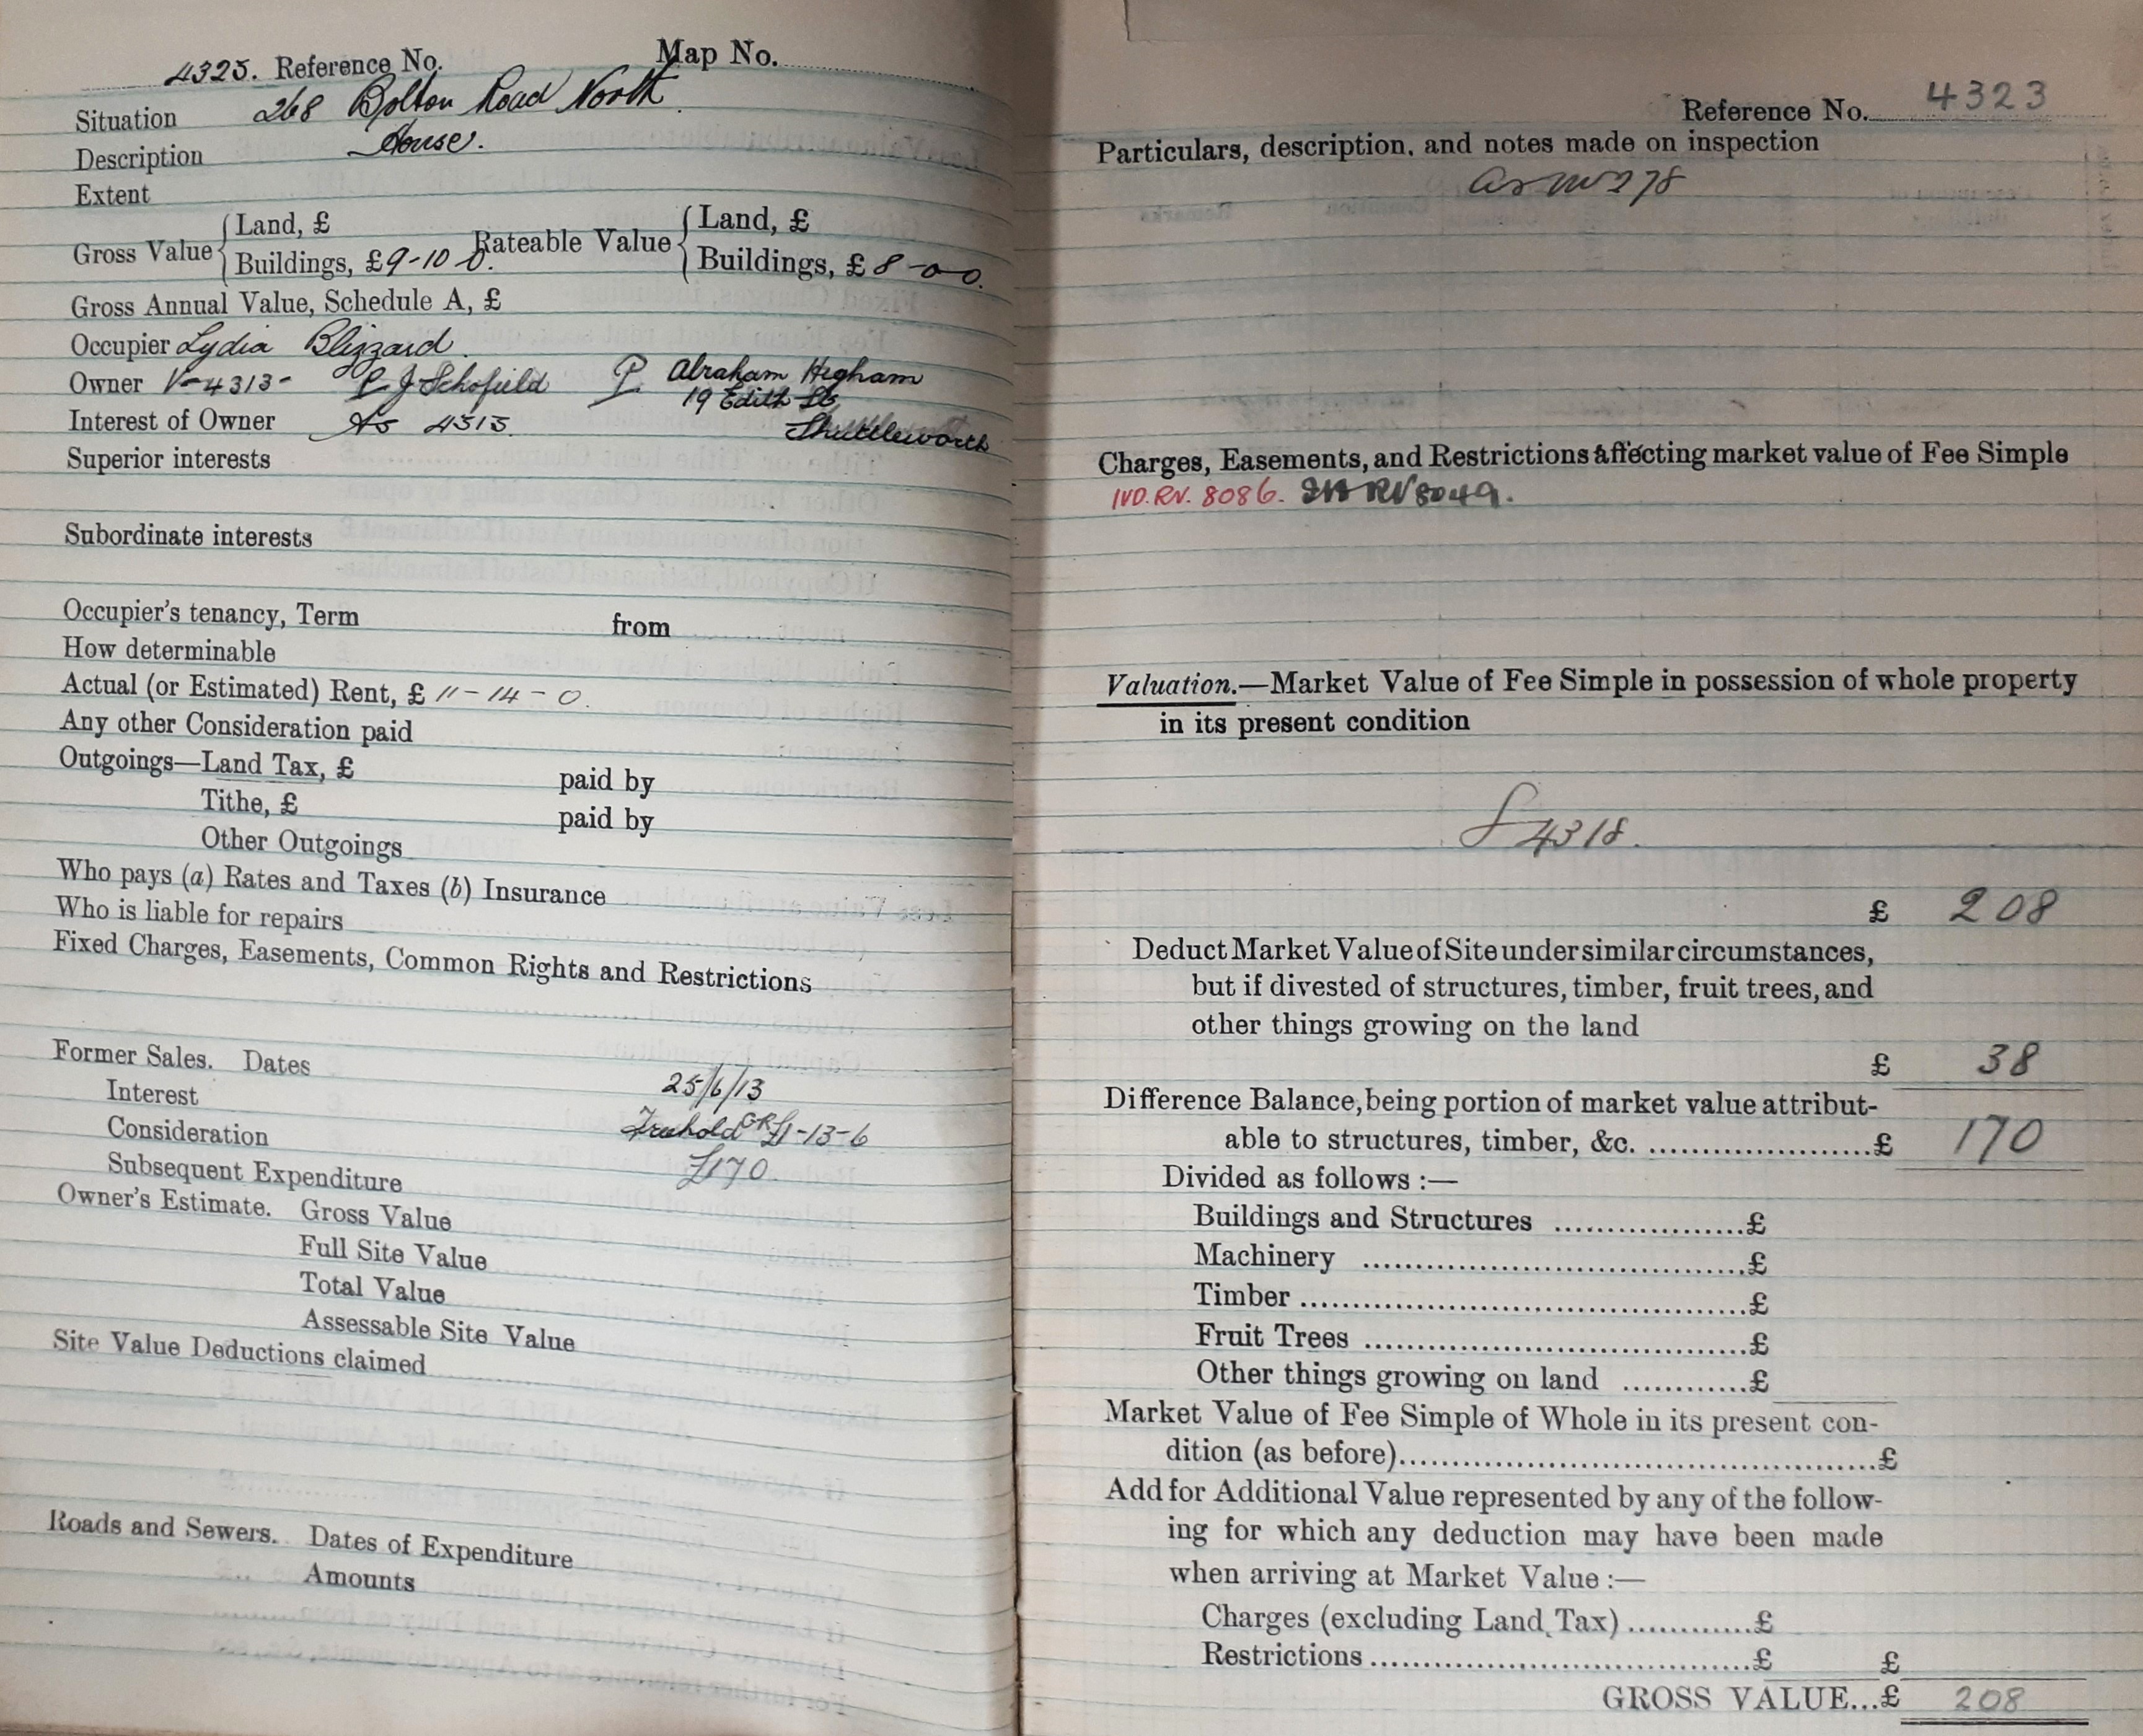 4323. Reference No. Map No.
Situation 268 Bolton Road North
Description House.
Extent
Gross Value { Land, £ Rateable Value { Land, £
Buildings, £9-10-0. Buildings, £8-0-0.
Gross Annual Value, Schedule A, £
Occupier Lydia Blizzard.
Owner V-4313- P J Schofield P Abraham Higham
19 Edith St
Interest of Owner As 4313. Shuttleworth
Superior interests
Subordinate interests
Occupier's tenancy, Term from
How determinable
Actual (or Estimated) Rent, £ 11-14-0.
Any other Consideration paid
Outgoings—Land Tax, £ paid by
Tithe, £ paid by
Other Outgoings
Who pays (a) Rates and Taxes (b) Insurance
Who is liable for repairs
Fixed Charges, Easements, Common Rights and Restrictions
Former Sales. Dates 25/6/13
Interest Freehold GR £1-13-6
Consideration £170.
Subsequent Expenditure
Owner's Estimate. Gross Value
Full Site Value
Total Value
Assessable Site Value
Site Value Deductions claimed
Roads and Sewers. Dates of Expenditure
Amounts
Reference No. 4323
Particulars, description, and notes made on inspection
as 278
Charges, Easements, and Restrictions affecting market value of Fee Simple
IVD. RV. 8086. RV 8049.
Valuation.—Market Value of Fee Simple in possession of whole property
in its present condition
4318.
£ 208
Deduct Market Value of Site under similar circumstances,
but if divested of structures, timber, fruit trees, and
other things growing on the land
£ 38
Difference Balance, being portion of market value attribut-
able to structures, timber, &c. .....................£ 170
Divided as follows :—
Buildings and Structures ..................£
Machinery .....................................£
Timber ...........................................£
Fruit Trees .....................................£
Other things growing on land ............£
Market Value of Fee Simple of Whole in its present con-
dition (as before)..............................................£
Add for Additional Value represented by any of the follow-
ing for which any deduction may have been made
when arriving at Market Value :—
Charges (excluding Land Tax) ............£
Restrictions .....................................£ £
GROSS VALUE...£ 208